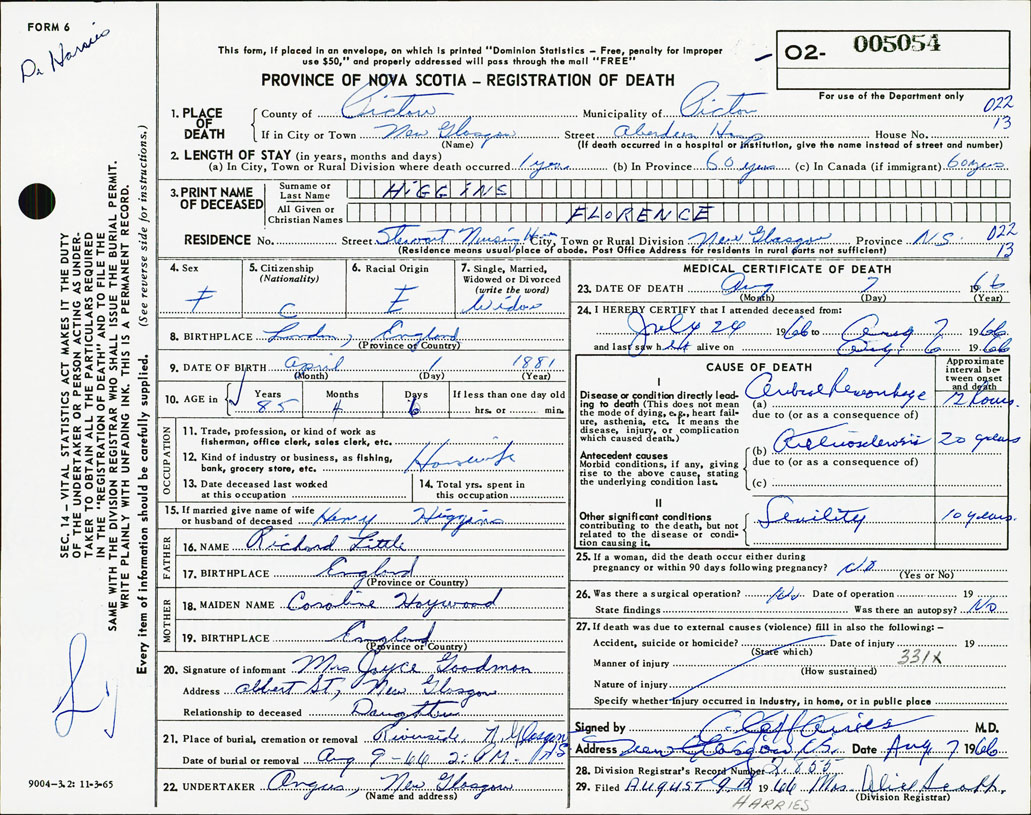 FORM 6
Dr Harries
This form, if placed in an envelope, on which is printed "Dominion Statistics – Free, penalty for improper
use $50," and properly addressed will pass through the mail "FREE"
PROVINCE OF NOVA SCOTIA – REGISTRATION OF DEATH
02- 005054
For use of the Department only
022
13
1. PLACE OF DEATH
County of Pictou Municipality of Pictou
If in City or Town New Glasgow Street Aberdeen Hosp House No.
(Name) (If death occurred in a hospital or institution, give the name instead of street and number)
2. LENGTH OF STAY (in years, months and days)
(a) In City, Town or Rural Division where death occurred 1 year (b) In Province 60 years (c) In Canada (if immigrant) 60 years
3. PRINT NAME OF DECEASED
Surname or Last Name HIGGINS
All Given or Christian Names FLORENCE
RESIDENCE No. Street Stewart Nursing Home City, Town or Rural Division New Glasgow Province N.S. 022
(Residence means usual place of abode. Post Office Address for residents in rural parts not sufficient) 13
4. Sex F
5. Citizenship (Nationality) C
6. Racial Origin E
7. Single, Married, Widowed or Divorced (write the word) Widow
8. BIRTHPLACE London, England
(Province or Country)
9. DATE OF BIRTH April 1 1881
(Month) (Day) (Year)
10. AGE in Years 85 Months 4 Days 6 If less than one day old hrs. or min.
OCCUPATION
11. Trade, profession, or kind of work as fisherman, office clerk, sales clerk, etc.
12. Kind of industry or business, as fishing, bank, grocery store, etc. Housewife
13. Date deceased last worked at this occupation
14. Total yrs. spent in this occupation
15. If married give name of wife or husband of deceased Henry Higgins
FATHER
16. NAME Richard Little
17. BIRTHPLACE England
(Province or Country)
MOTHER
18. MAIDEN NAME Caroline Haywood
19. BIRTHPLACE England
(Province or Country)
20. Signature of informant Mrs Joyce Goodman
Address Albert St, New Glasgow
Relationship to deceased Daughter
21. Place of burial, cremation or removal Riverside, N. Glasgow NS
Date of burial or removal Aug 9-66 2: P.M.
22. UNDERTAKER Angus, New Glasgow
(Name and address)
MEDICAL CERTIFICATE OF DEATH
23. DATE OF DEATH Aug 7 1966
(Month) (Day) (Year)
24. I HEREBY CERTIFY that I attended deceased from:
July 24 1966 to Aug 7 1966
and last saw her alive on Aug. 6 1966
CAUSE OF DEATH
Approximate interval between onset and death
I
Disease or condition directly leading to death (This does not mean the mode of dying, e.g., heart failure, asthenia, etc. It means the disease, injury, or complication which caused death.)
(a) Cerebral Hemorrhage 12 hours.
due to (or as a consequence of)
Antecedent causes
Morbid conditions, if any, giving rise to the above cause, stating the underlying condition last.
(b) Arteriosclerosis 20 years
due to (or as a consequence of)
(c)
II
Other significant conditions contributing to the death, but not related to the disease or condition causing it.
Senility 10 years.
25. If a woman, did the death occur either during pregnancy or within 90 days following pregnancy? No
(Yes or No)
26. Was there a surgical operation? No Date of operation 19
State findings Was there an autopsy? No
27. If death was due to external causes (violence) fill in also the following: –
Accident, suicide or homicide? Date of injury 19
(State which) 331X
Manner of injury
(How sustained)
Nature of injury
Specify whether injury occurred in Industry, in home, or in public place
Signed by M.D.
Address New Glasgow N.S. Date Aug 7 1966
28. Division Registrar's Record Number 2855
29. Filed AUGUST 9th 1966 Mrs. Alice Heath.
(Division Registrar)
HARRIES
SEC. 14 – VITAL STATISTICS ACT MAKES IT THE DUTY
OF THE UNDERTAKER OR PERSON ACTING AS UNDER-
TAKER TO OBTAIN ALL THE PARTICULARS REQUIRED
IN THE "REGISTRATION OF DEATH" AND TO FILE THE
SAME WITH THE DIVISION REGISTRAR WHO SHALL ISSUE THE BURIAL PERMIT.
WRITE PLAINLY WITH UNFADING INK. THIS IS A PERMANENT RECORD.
Every item of information should be carefully supplied. (See reverse side for instructions.)
9004-3.2: 11-3-65